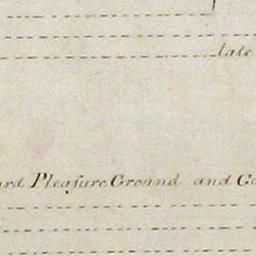 late
Pleaſure Ground and